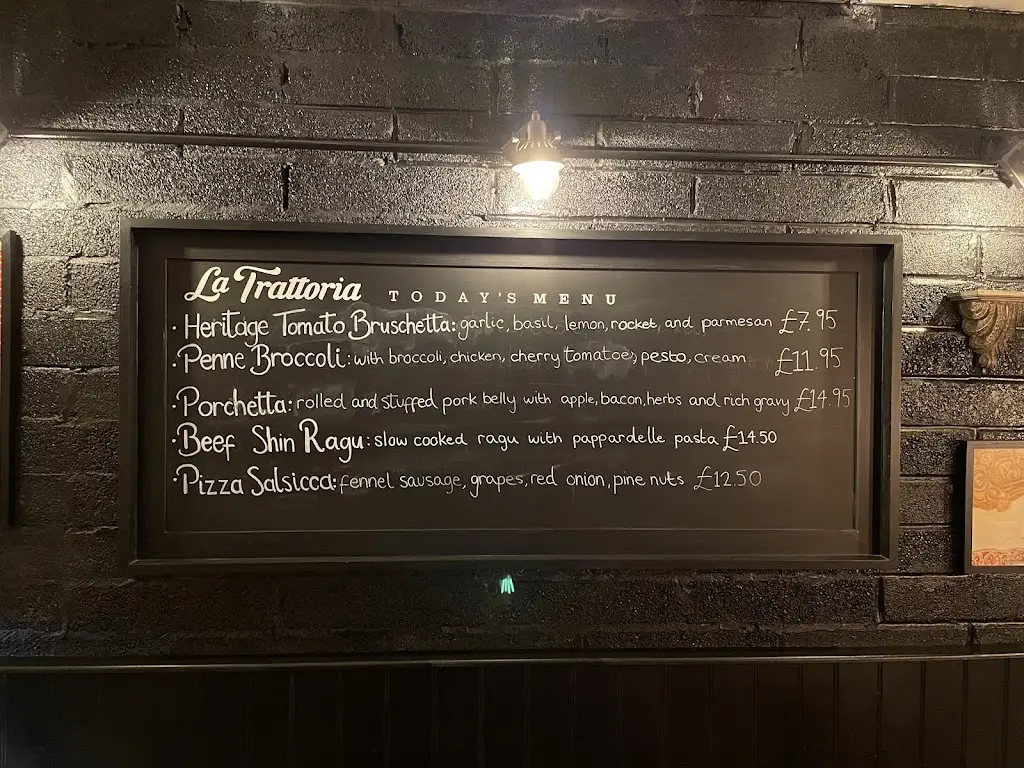 La Trattoria TODAY'S MENU
· Heritage Tomato Bruschetta: garlic, basil, lemon, rocket, and parmesan £7.95
· Penne Broccoli: with broccoli, chicken, cherry tomatoe, pesto, cream £11.95
· Porchetta: rolled and stuffed pork belly with apple, bacon, herbs and rich gravy £14.95
· Beef Shin Ragu: slow cooked ragu with pappardelle pasta £14.50
· Pizza Salsicca: fennel sausage, grapes, red onion, pine nuts £12.50